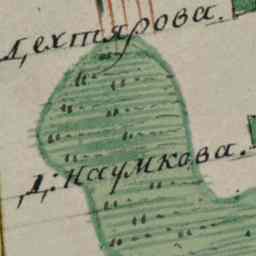 Дехтярова.
Д: Наумкова.